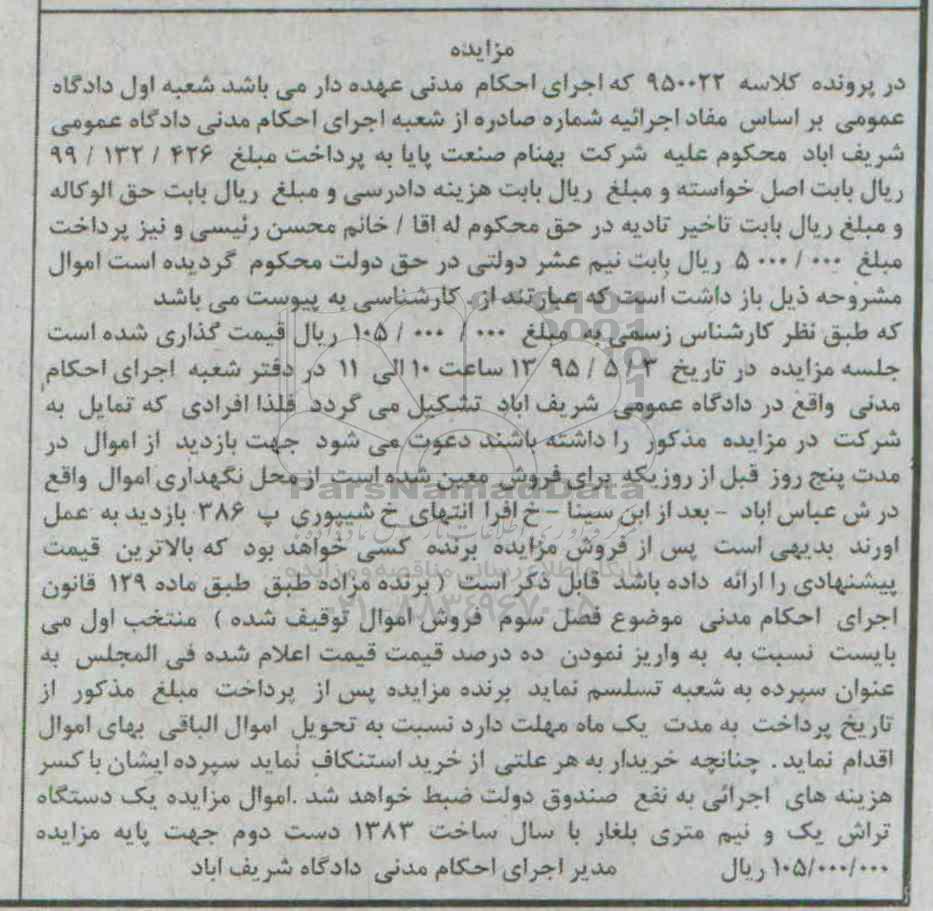 مزایده
در پرونده کلاسه ۹۵۰۰۲۲ که اجرای احکام مدنی عهده دار می باشد شعبه اول دادگاه
عمومی بر اساس مفاد اجرائیه شماره صادره از شعبه اجرای احکام مدنی دادگاه عمومی
شریف اباد محکوم علیه شرکت بهنام صنعت پایا به پرداخت مبلغ ۴۲۶ / ۱۳۲ / ۹۹
ریال بابت اصل خواسته و مبلغ ریال بابت هزینه دادرسی و مبلغ ریال بابت حق الوکاله
و مبلغ ریال بابت تاخیر تادیه در حق محکوم له اقا / خانم محسن رئیسی و نیز پرداخت
مبلغ ۰۰۰ / ۰۰۰ ۵ ریال بابت نیم عشر دولتی در حق دولت محکوم گردیده است اموال
مشروحه ذیل باز داشت است که عبارتند از کارشناسی به پیوست می باشد
که طبق نظر کارشناس رسمی به مبلغ ۰۰۰ / ۰۰۰ / ۱۰۵ ریال قیمت گذاری شده است
جلسه مزایده در تاریخ ۳ / ۵ / ۹۵ ۱۳ ساعت ۱۰ الی ۱۱ در دفتر شعبه اجرای احکام
مدنی واقع در دادگاه عمومی شریف اباد تشکیل می گردد فلذا افرادی که تمایل به
شرکت در مزایده مذکور را داشته باشند دعوت می شود جهت بازدید از اموال در
مدت پنج روز قبل از روزیکه برای فروش معین شده است از محل نگهداری اموال واقع
در ش عباس اباد - بعد از ابن سینا - خ افرا انتهای خ شیپوری پ ۳۸۶ بازدید به عمل
اورند بدیهی است پس از فروش مزایده برنده کسی خواهد بود که بالاترین قیمت
پیشنهادی را ارائه داده باشد قابل ذکر است ( برنده مزاده طبق طبق ماده ۱۲۹ قانون
اجرای احکام مدنی موضوع فصل سوم فروش اموال توقیف شده ) منتخب اول می
بایست نسبت به به واریز نمودن ده درصد قیمت قیمت اعلام شده فی المجلس به
عنوان سپرده به شعبه تسلسم نماید برنده مزایده پس از پرداخت مبلغ مذکور از
تاریخ پرداخت به مدت یک ماه مهلت دارد نسبت به تحویل اموال الباقی بهای اموال
اقدام نماید . چنانچه خریدار به هر علتی از خرید استنکاف نماید سپرده ایشان با کسر
هزینه های اجرائی به نفع صندوق دولت ضبط خواهد شد .اموال مزایده یک دستگاه
تراش یک و نیم متری بلغار با سال ساخت ۱۳۸۳ دست دوم جهت پایه مزایده
۱۰۵/۰۰۰/۰۰۰ ریال مدیر اجرای احکام مدنی دادگاه شریف اباد
ParsNamadData
پایگاه اطلاع رسانی مناقصه و مزایده